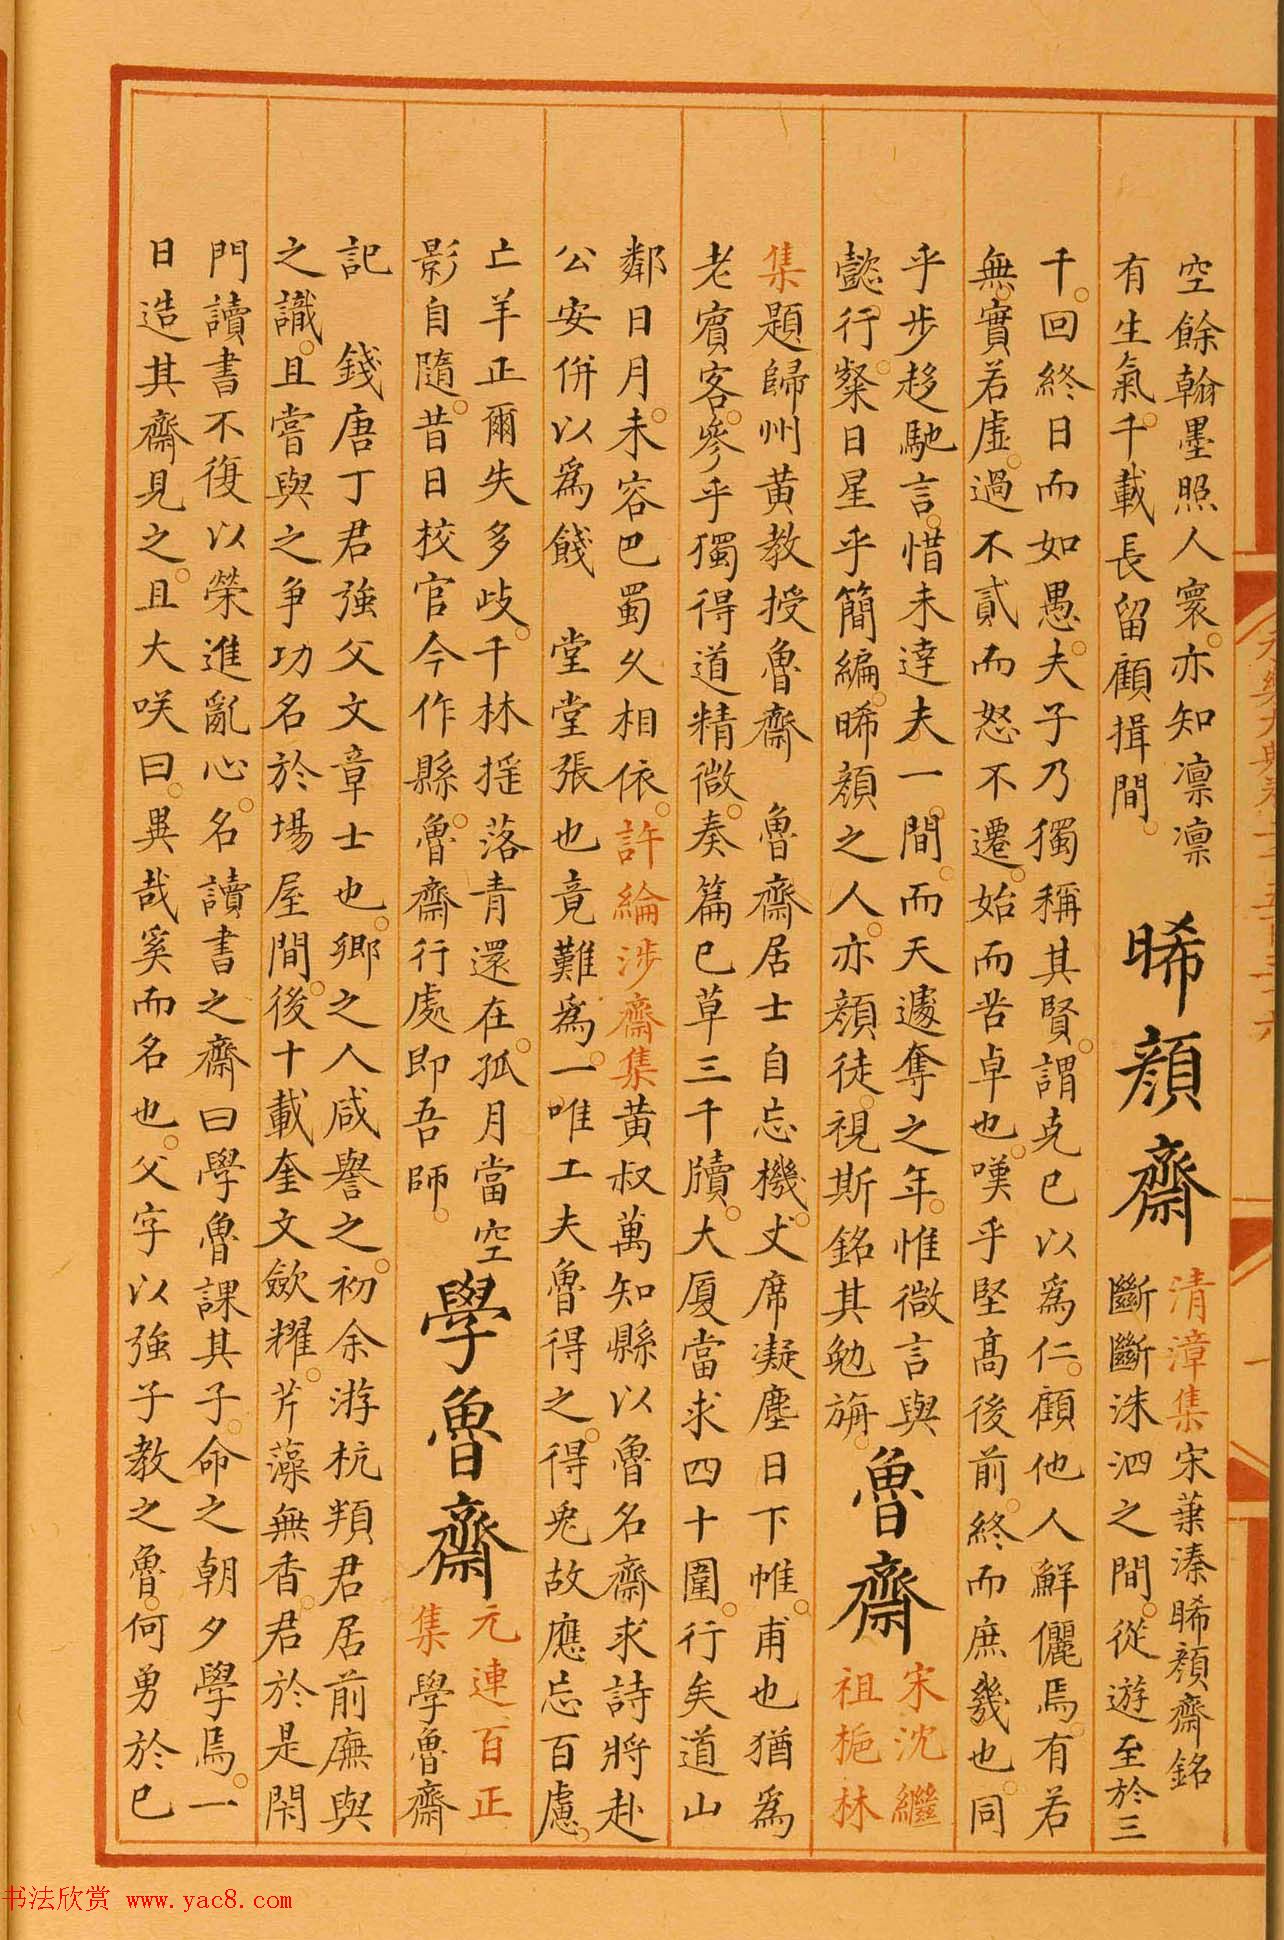 空餘翰墨照人寰亦知凛凛
有生氣千載長留顧揖間
晞顔齋
清漳集宋葉溱晞顔齋銘
斷斷洙泗之間從遊至於三
千回終日而如愚夫子乃獨稱其賢謂克己以爲仁顧他人鮮儷焉有若
無實若虛過不貳而怒不遷始而苦卓也嘆乎堅髙後前終而庶幾也同
乎步趍馳言惜未達夫一間而天遽奪之年惟微言與
懿行粲日星乎簡編晞顔之人亦顔徒視斯銘其勉旃
魯齋
宋沈繼
祖梔林
集題歸州黃教授魯齋 魯齋居士自忘機丈席凝塵日下帷甫也猶爲
老賔客參乎獨得道精微奏篇已草三千牘大厦當求四十圍行矣道山
鄰日月未容巴蜀久相依許綸涉齋集黃叔萬知縣以魯名齋求詩將赴
公安併以爲餞 堂堂張也竟難爲一唯工夫魯得之得兎故應忘百慮
亡羊正爾失多歧千林揺落青還在孤月當空
影自隨昔日校官今作縣魯齋行處即吾師
學魯齋
元連百正
集學魯齋
記 錢唐丁君強父文章士也鄉之人咸譽之初余游杭𩔖君居前廡與
之識且嘗與之爭功名於場屋間後十載奎文歛耀芹藻無香君於是閑
門讀書不復以榮進亂心名讀書之齋曰學魯課其子命之朝夕學焉一
日造其齋見之且大咲曰異哉奚而名也父字以強子教之魯何勇於已
书法欣赏 www.yac8.com